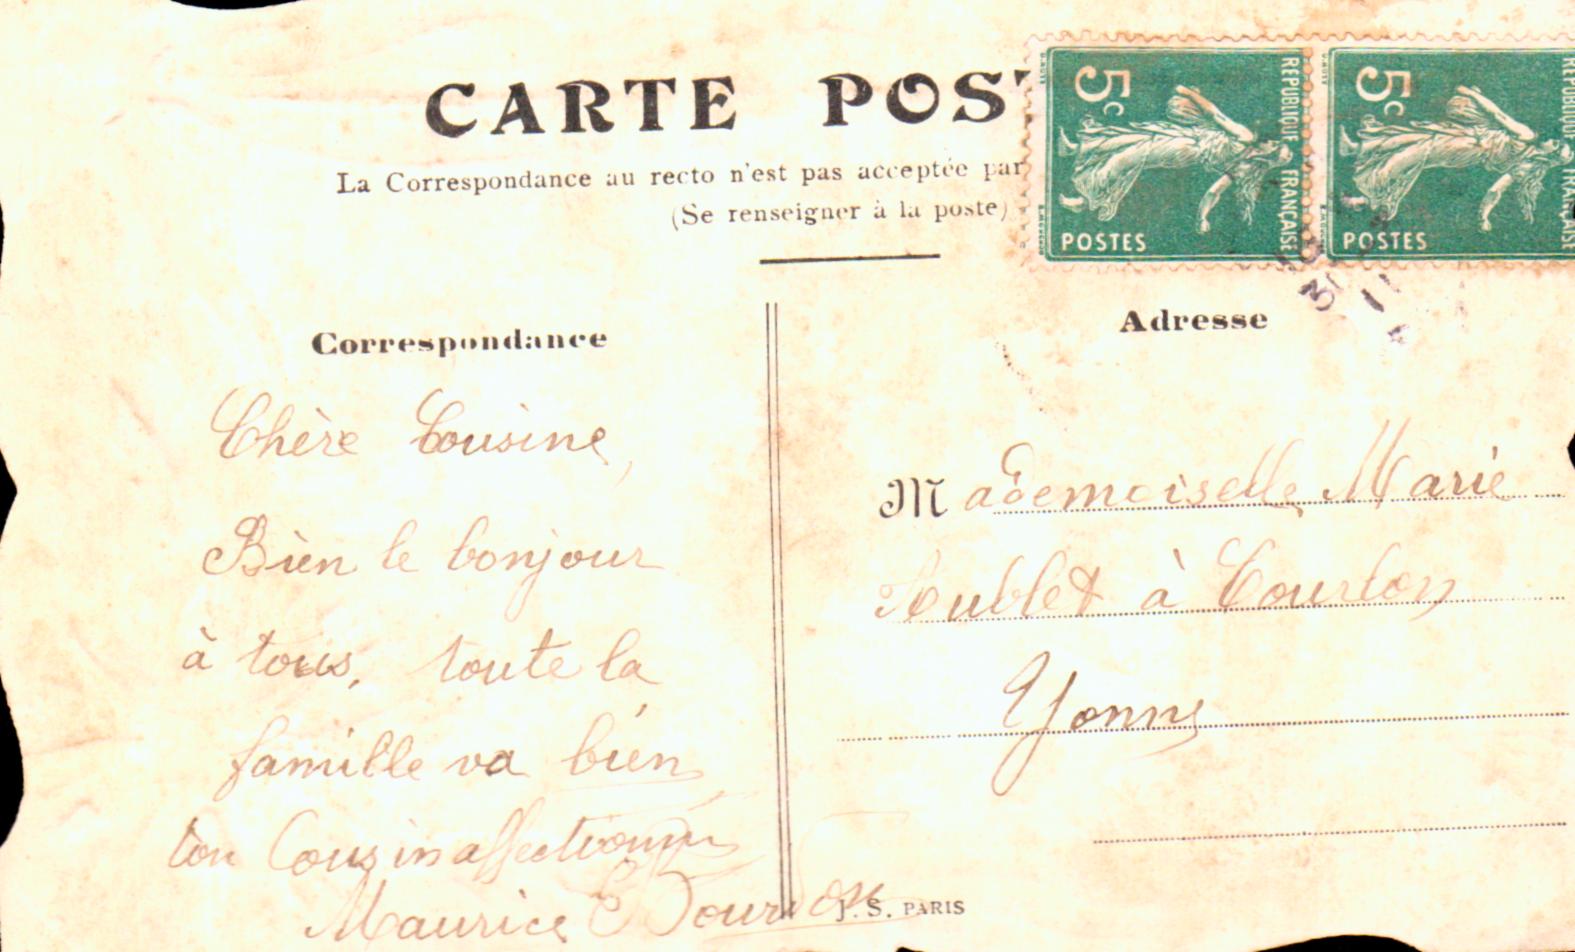 CARTE POST
La Correspondance au recto n'est pas acceptée par
(Se renseigner à la poste)
5c
REPUBLIQUE FRANÇAISE
POSTES
5c
REPUBLIQUE FRANÇAISE
POSTES
31
11
Correspondance
Chère Cousine,
Bien le bonjour
à tous, toute la
famille va bien
ton Cousin affectionné
Maurice Bourdon
J. S. PARIS
Adresse
Mademoiselle Marie
à Courlon
Yonne